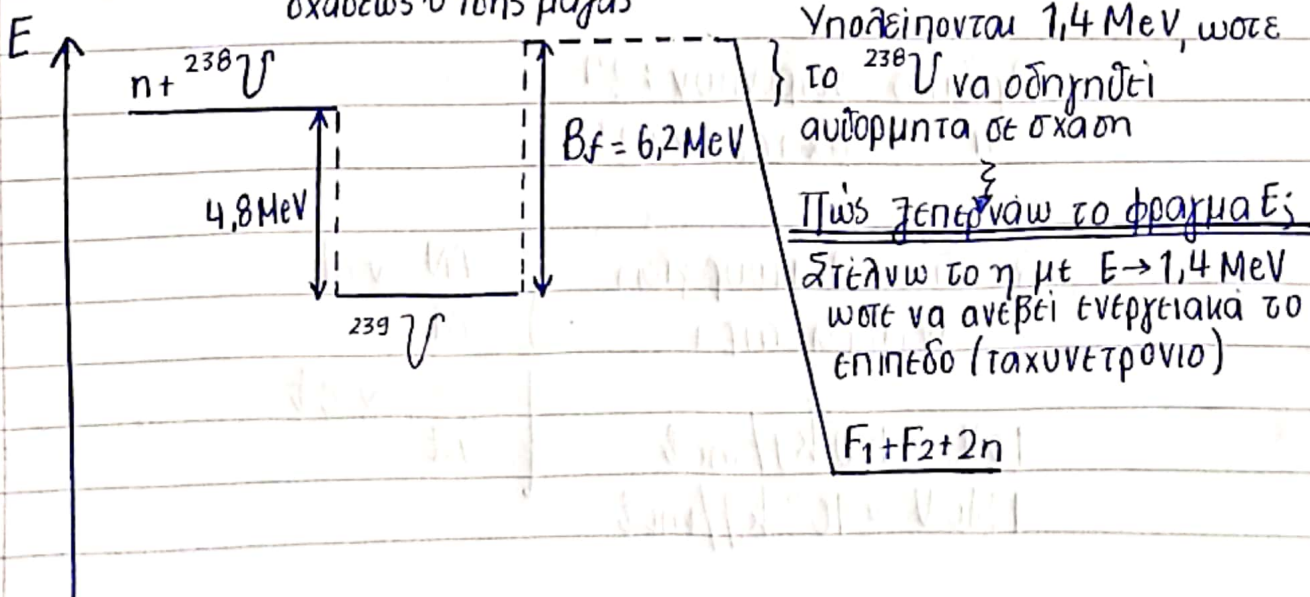 σχάσεως ο ίσης μάζας
E
n + ²³⁸U
4,8 MeV
²³⁹U
Bf = 6,2 MeV
Υπολείπονται 1,4 MeV, ωστε
} το ²³⁸U να οδηγηθεί
αυθόρμητα σε σχαση
Πώς ξεπερνάω το φραγμα Ε;
Στέλνω το η με Ε → 1,4 MeV
ωστε να ανέβει ενεργειακά το
επιπεδο (ταχυνετρονιο)
F₁ + F₂ + 2n